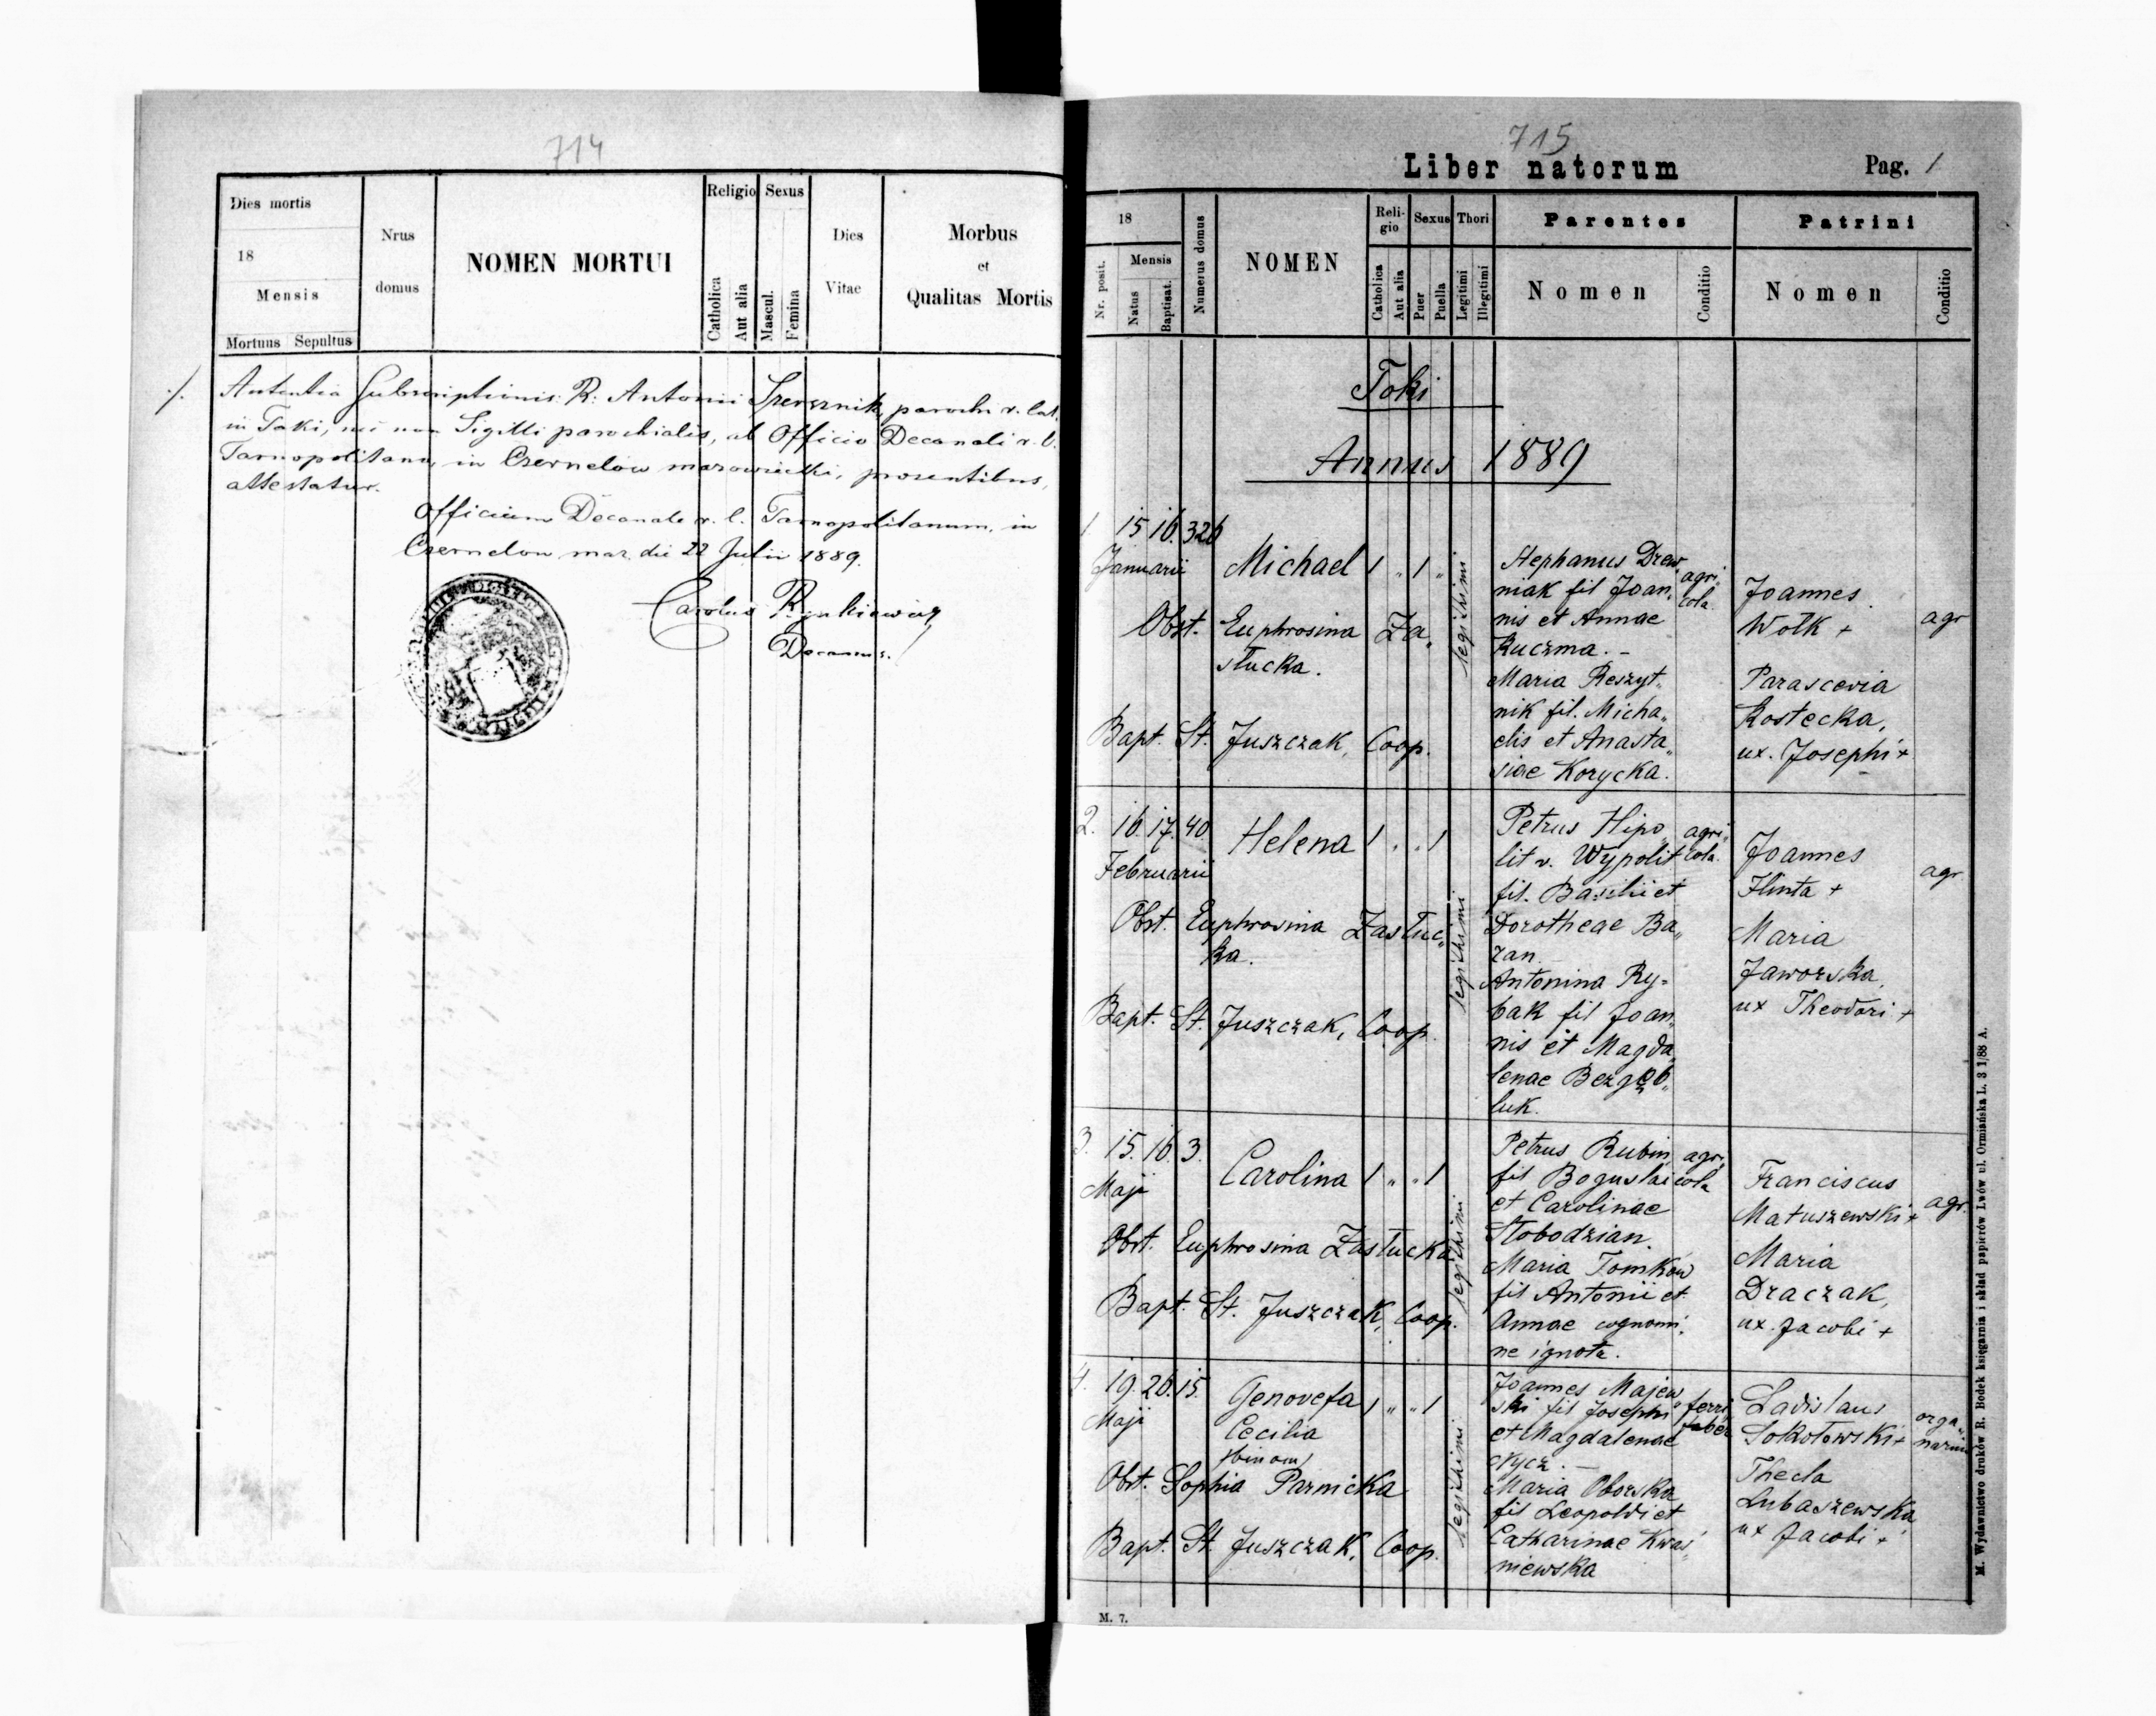 714
Dies mortis
18
Mensis
Mortuus Sepultus
Nrus
domus
NOMEN MORTUI
Religio
Catholica
Aut alia
Sexus
Mascul.
Femina
Dies
Vitae
Morbus
et
Qualitas Mortis
./.
Autentia Subscriptionis R. Antonii parochi r. lat.
in Toki, nec non Sigilli parochialis, ab Officio Decanali r. l.
Tarnopolitano, in Czernelow mazowiecki, presentibus,
attestatur.
Officium Decanale r. l. Tarnopolitanum, in
Czernelow maz. die 22 Julii 1889.
Carolus
Decanus.
715
Liber natorum
Pag. 1
18
Nr. posit.
Mensis
Natus
Baptisat.
Numerus domus
NOMEN
Reli-
gio
Catholica
Aut alia
Sexus
Puer
Puella
Thori
Legitimi
Illegitimi
Parentes
Nomen
Conditio
Patrini
Nomen
Conditio
Toki
Annus 1889
1 15 16. 326
Januarii
Michael 1 „ 1 „
Obst. Euphrosina Za„
słucka.
Bapt. St. Juszczak, Coop.
legithimi
Stephanus Drew„
niak fil Joan„
nis et Annae
Kuczma. –
Maria Reszyt„
nik fil. Micha„
elis et Anasta„
siae Korycka.
agri„
cola
Joannes
Wołk +
Parascevia
Kostecka,
ux. Josephi +
agr
2. 16. 17. 40
Februarii
Helena 1 „ „ 1
Obst. Euphrosina Zasłuc„
ka.
Bapt. St. Juszczak, Coop.
legithimi
Petrus Hipo„
lit v. Wypolit
fil. Basilii et
Dorotheae Ba„
ran.
Antonina Ry=
bak fil Joan„
nis et Magda„
lenae
luk.
agri„
cola.
Joannes
Hlinta +
Maria
Jaworska,
ux Theodori +
agr
3. 15. 16. 3.
Maji
Carolina 1 „ „ 1
Obst. Euphrosina Zasłucka
Bapt. St. Juszczak, Coop.
legithimi
Petrus Rubin
fil Boguslai
et Carolinae
Słobodzian.
Maria Tomków
fil Antonii et
Annae cognomi„
ne ignota.
agri„
cola
Franciscus
Matuszewski +
Maria
Draczak,
ux. Jacobi +
agr.
4. 19. 26. 15.
Maji
Genovefa 1 „ „ 1
Cecilia
/bin om/
Obst. Sophia Parnicka
Bapt. St. Juszczak, Coop.
legithimi
Joannes Majew„
ski fil Josephi
et Magdalenae
Maria Oborska
fil Leopoldi et
Catharinae Kwaś„
niewska
ferri„
faber
Ladislaus
Sokołowski +
Thecla
Lubaszewska
ux Jacobi +
orga„
narius
M. 7.
M. Wydawnictwo druków R. Bodek księgarnia i skład papierów Lwów ul. Ormiańska L. 3 1/88 A.